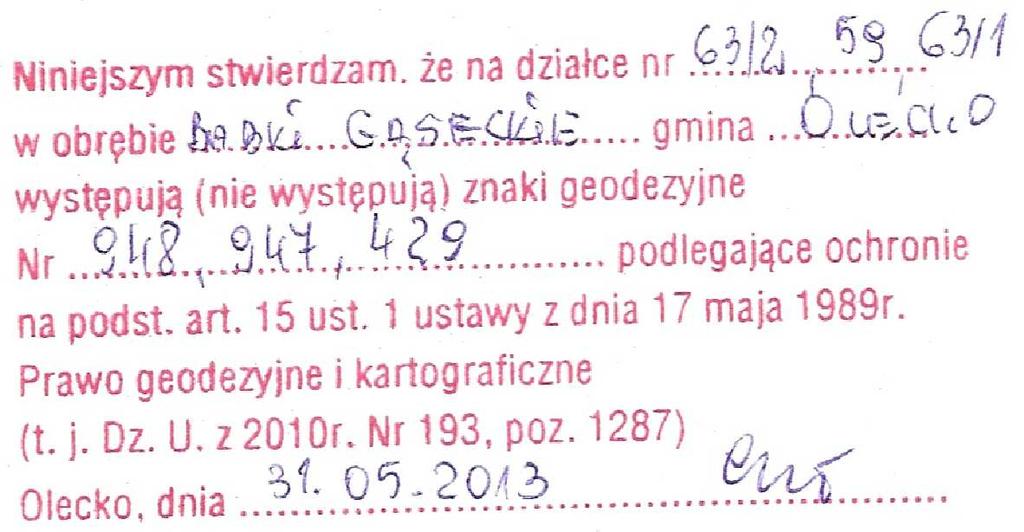 Niniejszym stwierdzam. że na działce nr 63/2, 59, 63/1
w obrębie BABKI GĄSECKIE gmina OLECKO
występują (nie występują) znaki geodezyjne
Nr 948, 947, 429 podlegające ochronie
na podst. art. 15 ust. 1 ustawy z dnia 17 maja 1989r.
Prawo geodezyjne i kartograficzne
(t. j. Dz. U. z 2010r. Nr 193, poz. 1287)
Olecko, dnia 31.05.2013